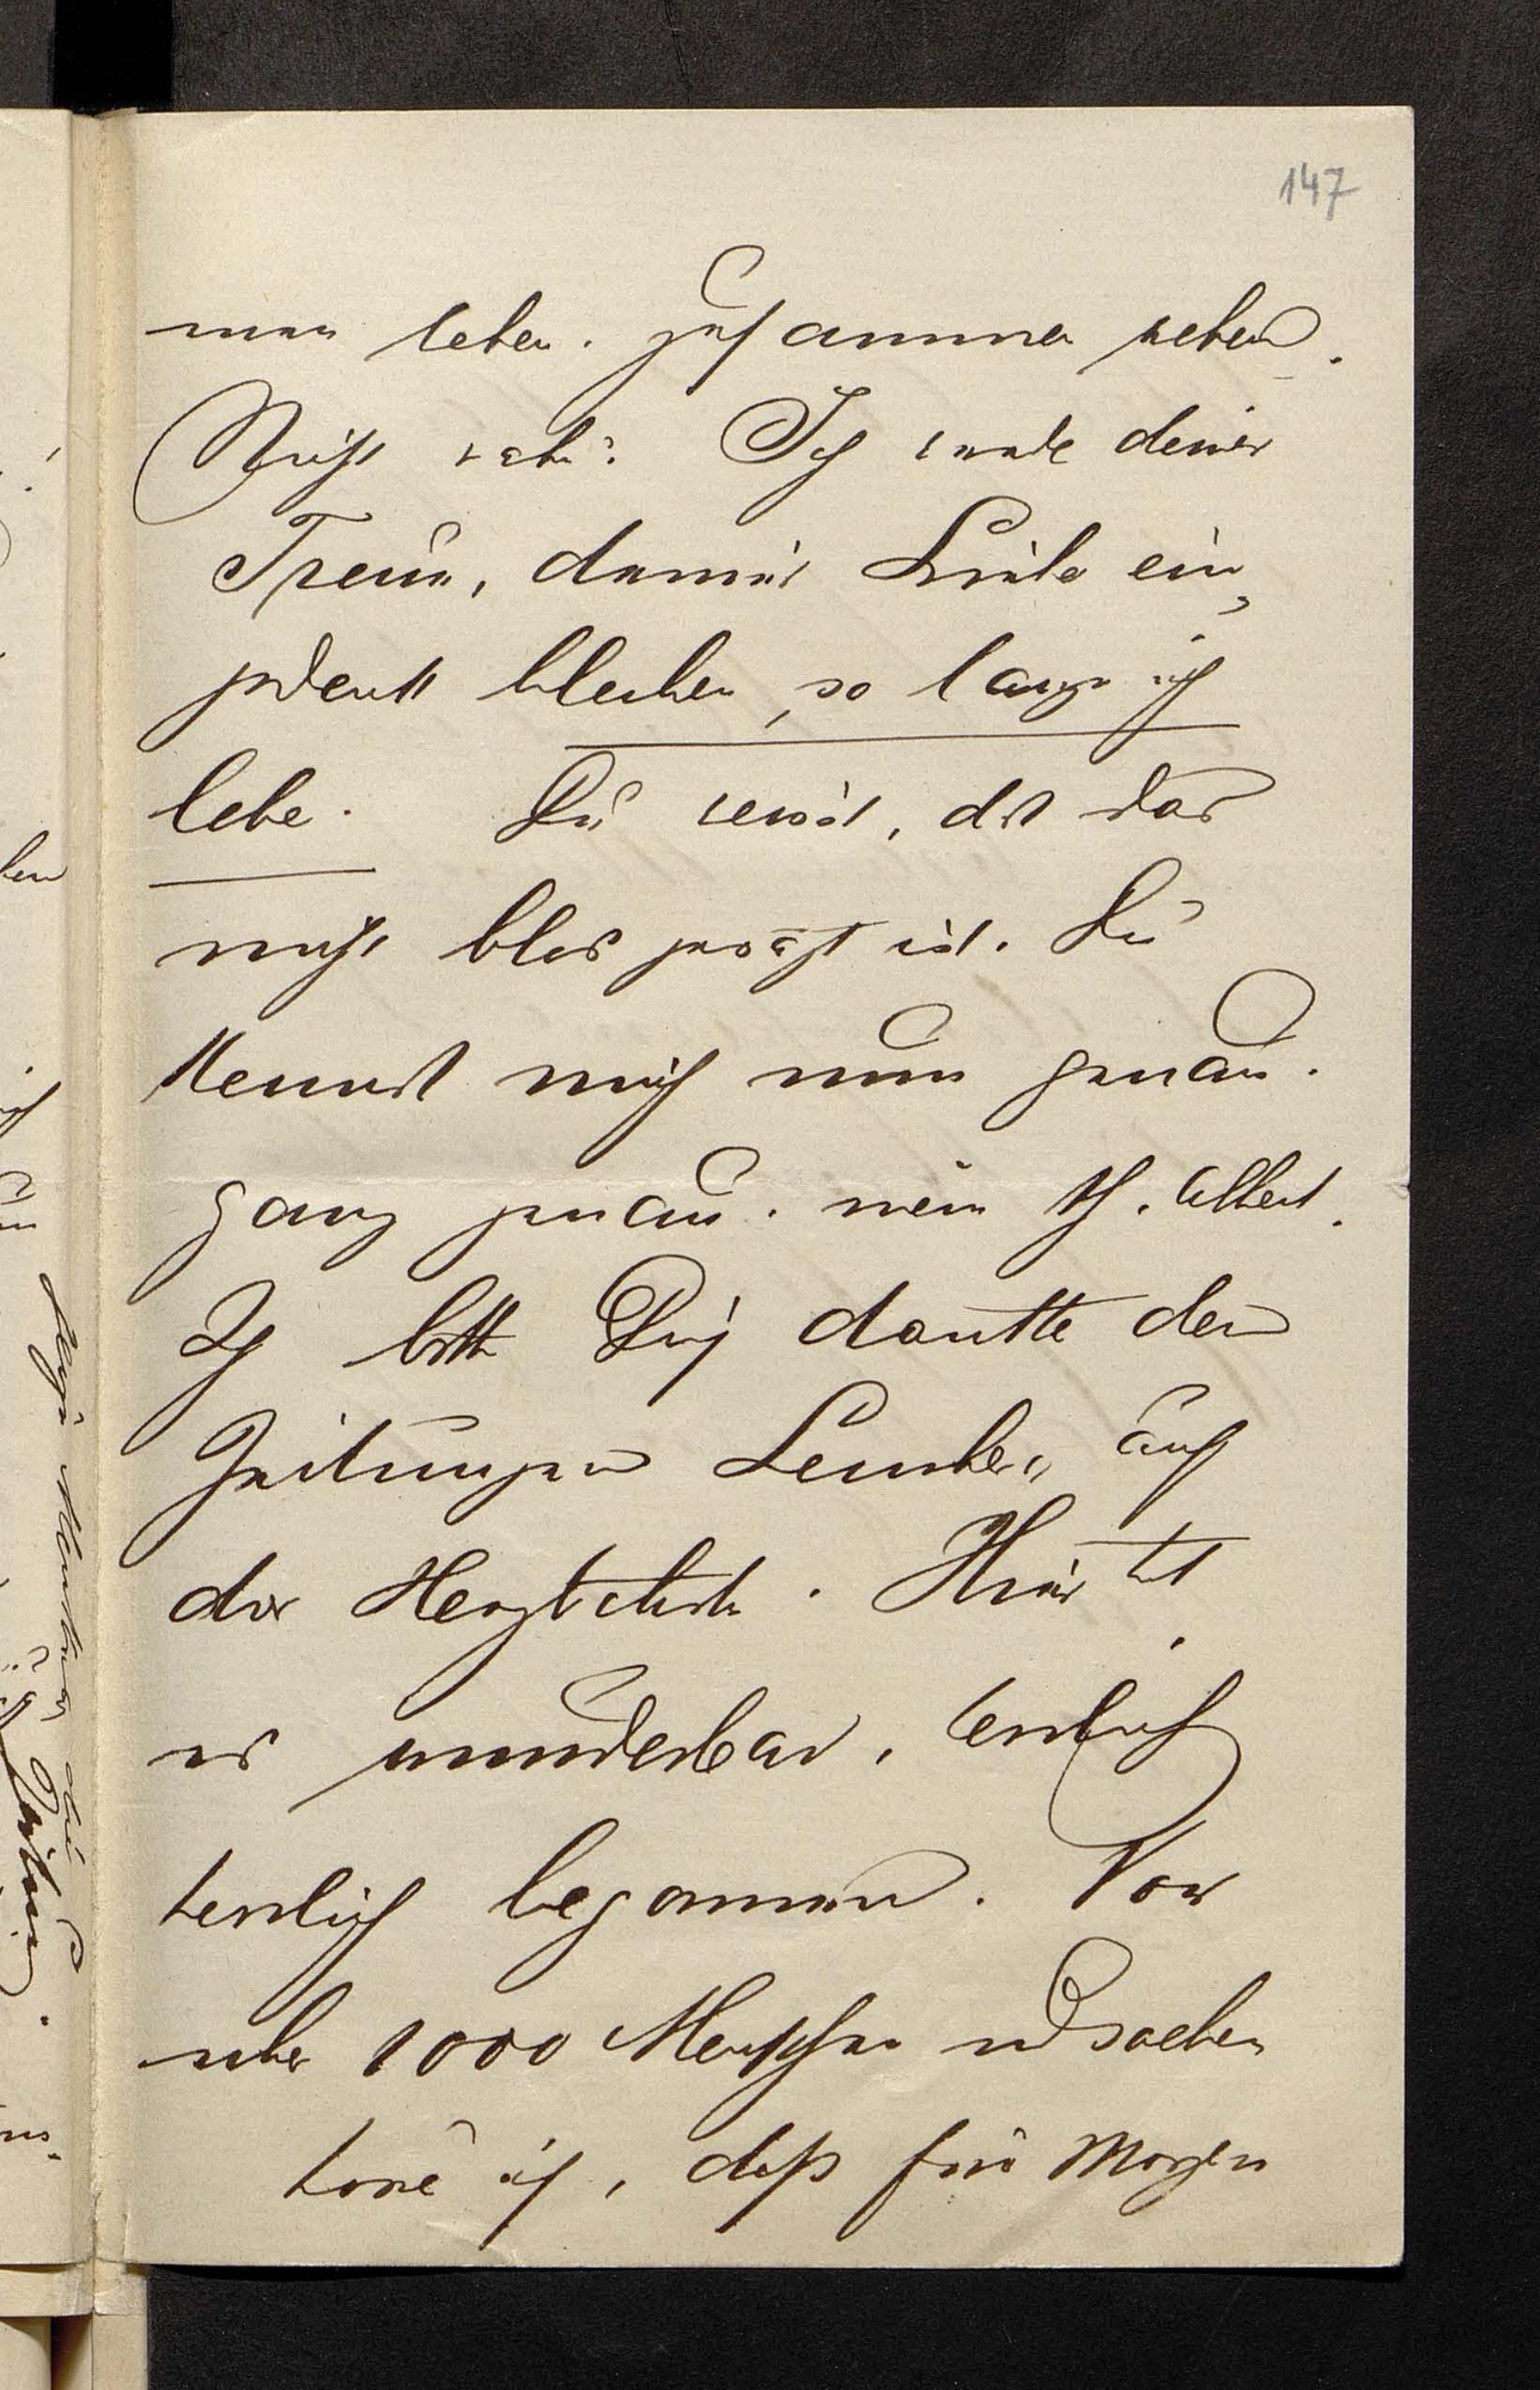 147
man leben. zusammen reden.
Nicht wahr? Ich werde deiner
Treue, deiner Liebe ein„
gedenk bleiben, so lange ich
lebe. Du weist, dß das
nicht blos gesagt ist. Du
kennst mich nun genau.
ganz genau. mein th. Albert.
Ich bitte Dich danke den
Zeitungen Lembergs auf
das Herzlichste. Hier hat
es wunderbar, herrlich
herrlich begonnen. Vor
über 1000 Menschen und soeben
höre ich, daß für Morgen